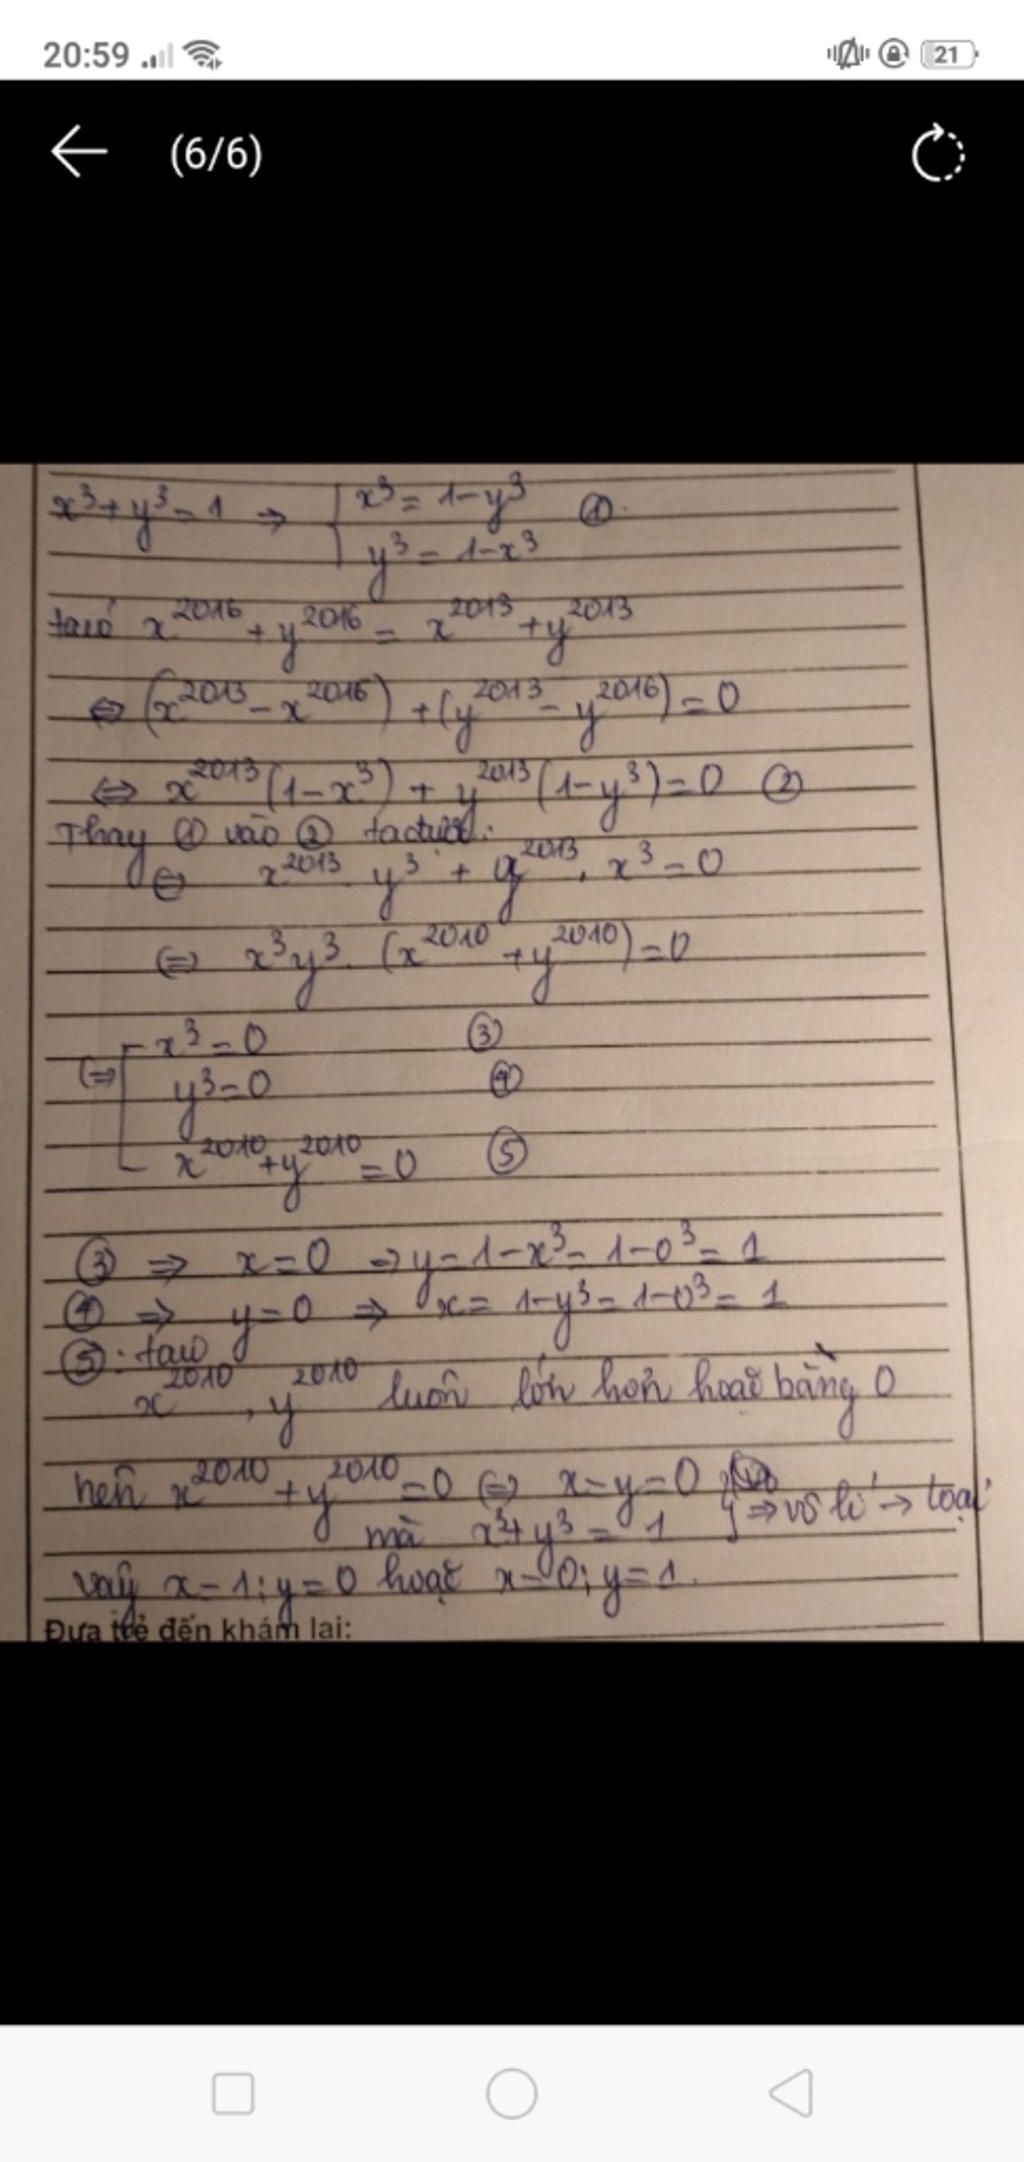 20:59 21
(6/6)
x³+y³=1 ⇒ { x³ = 1-y³ ①
y³ = 1-x³
taco x²⁰¹⁶ + y²⁰¹⁶ = x²⁰¹³ + y²⁰¹³
⇔ (x²⁰¹³ - x²⁰¹⁶) + (y²⁰¹³ - y²⁰¹⁶) = 0
⇔ x²⁰¹³ (1-x³) + y²⁰¹³ (1-y³) = 0 ②
Thay ① vào ② tacđược:
⇔ x²⁰¹³ y³ + y²⁰¹³ . x³ = 0
⇔ x³y³. (x²⁰¹⁰ + y²⁰¹⁰) = 0
⇔ [ x³ = 0 ③
y³ = 0 ④
x²⁰¹⁰ + y²⁰¹⁰ = 0 ⑤
③ ⇒ x = 0 ⇒ y = 1-x³ = 1-0³ = 1
④ ⇒ y = 0 ⇒ x = 1-y³ = 1-0³ = 1
⑤: taco
x²⁰¹⁰, y²⁰¹⁰ luôn lớn hơn hoặc bằng 0
nên x²⁰¹⁰ + y²⁰¹⁰ = 0 ⇔ x = y = 0
mà x³ + y³ = 1 } ⇒ vô lí → loại
vậy x = 1; y = 0 hoặc x = 0; y = 1.
Đưa trẻ đến khám lại: